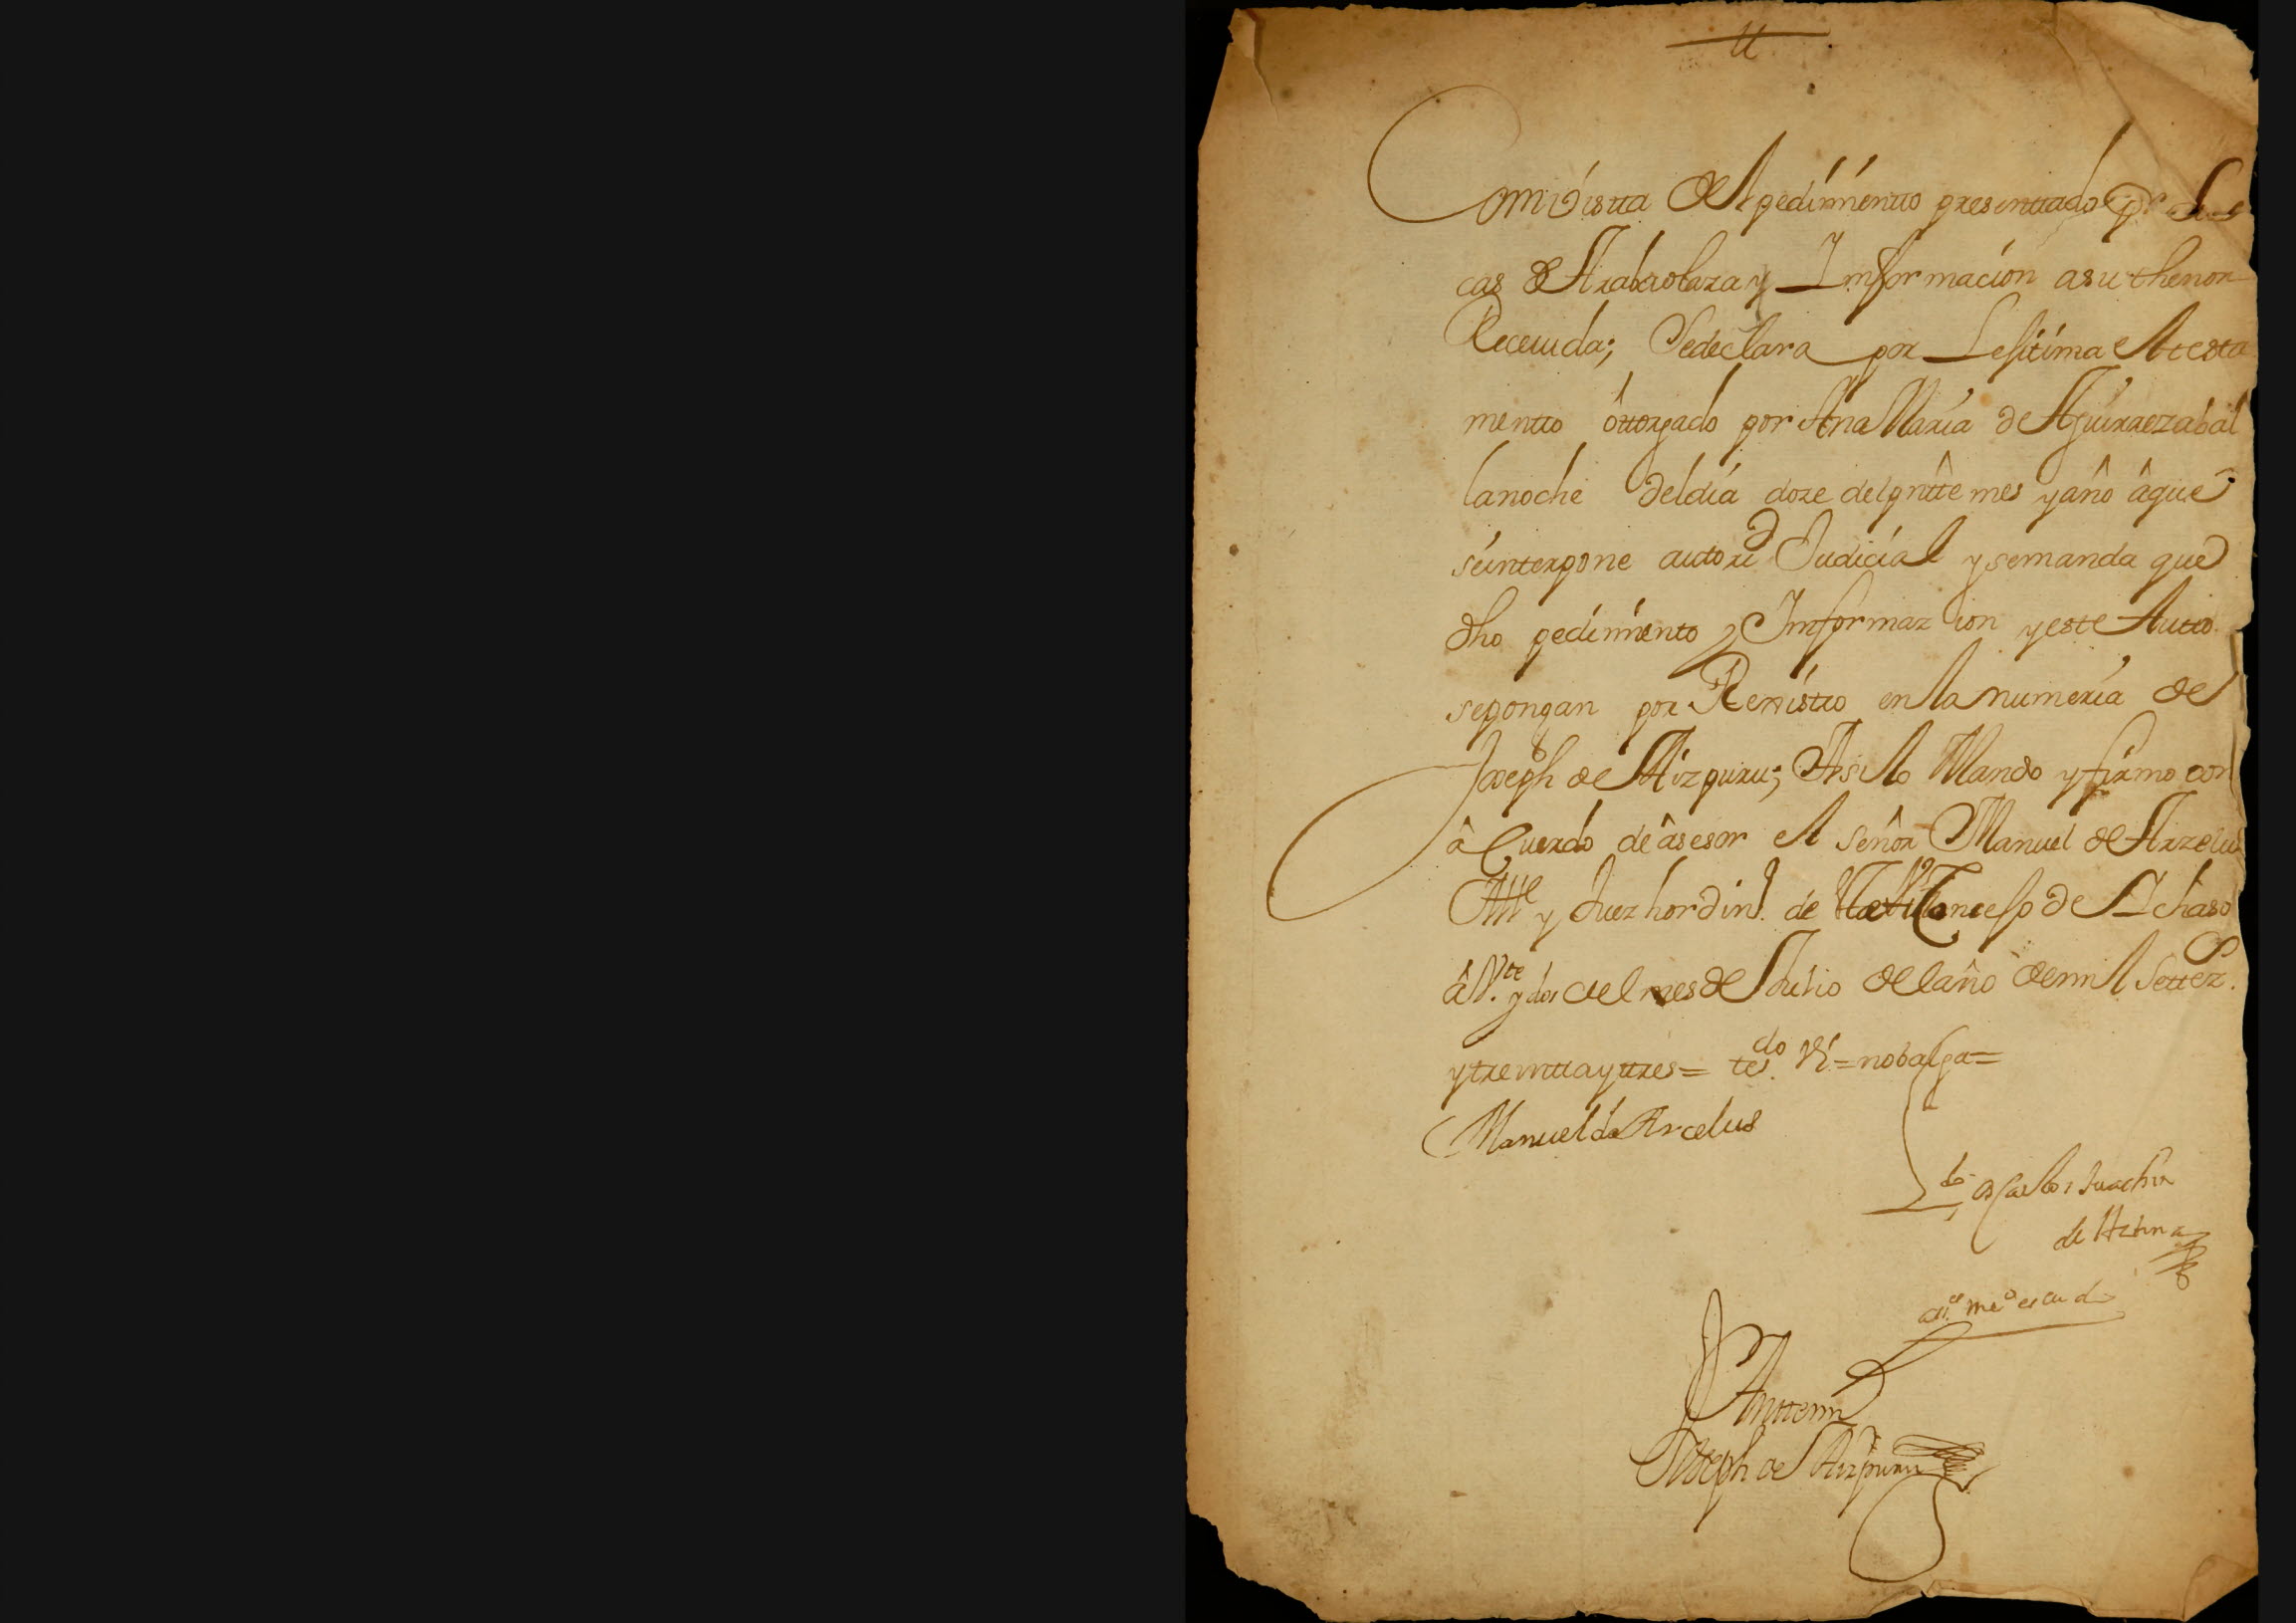 Com Vistta del pedimientto presenttado pr Lu
cas de Arabaolaza y Informacion asu thenor
Receuida; Sedeclara por Lexitima el testa
mentto ôttorgado por Ana Maria de Aguirrezabal
lanoche deldia doze delpntte mes yaño âque
seinterpone autorid Judicial ysemanda que
dho pedimiento y Informazion yeste Autto
sepongan por Rexistro en la numeria de
Joseph de Aizpuru; Asilo Mando yfirmo con
âCuerdo deâsesor el señor Manuel de Arzelus
Allle y Juez hordino. de Concejo de Ichaso
â Vte. ydos del mes de Julio del año demil settez.
ytreinttayttres= tesdo. Vi=nobalga=
Manuel de Arcelus
do
de
Anttemi
Joseph de Aizpuru